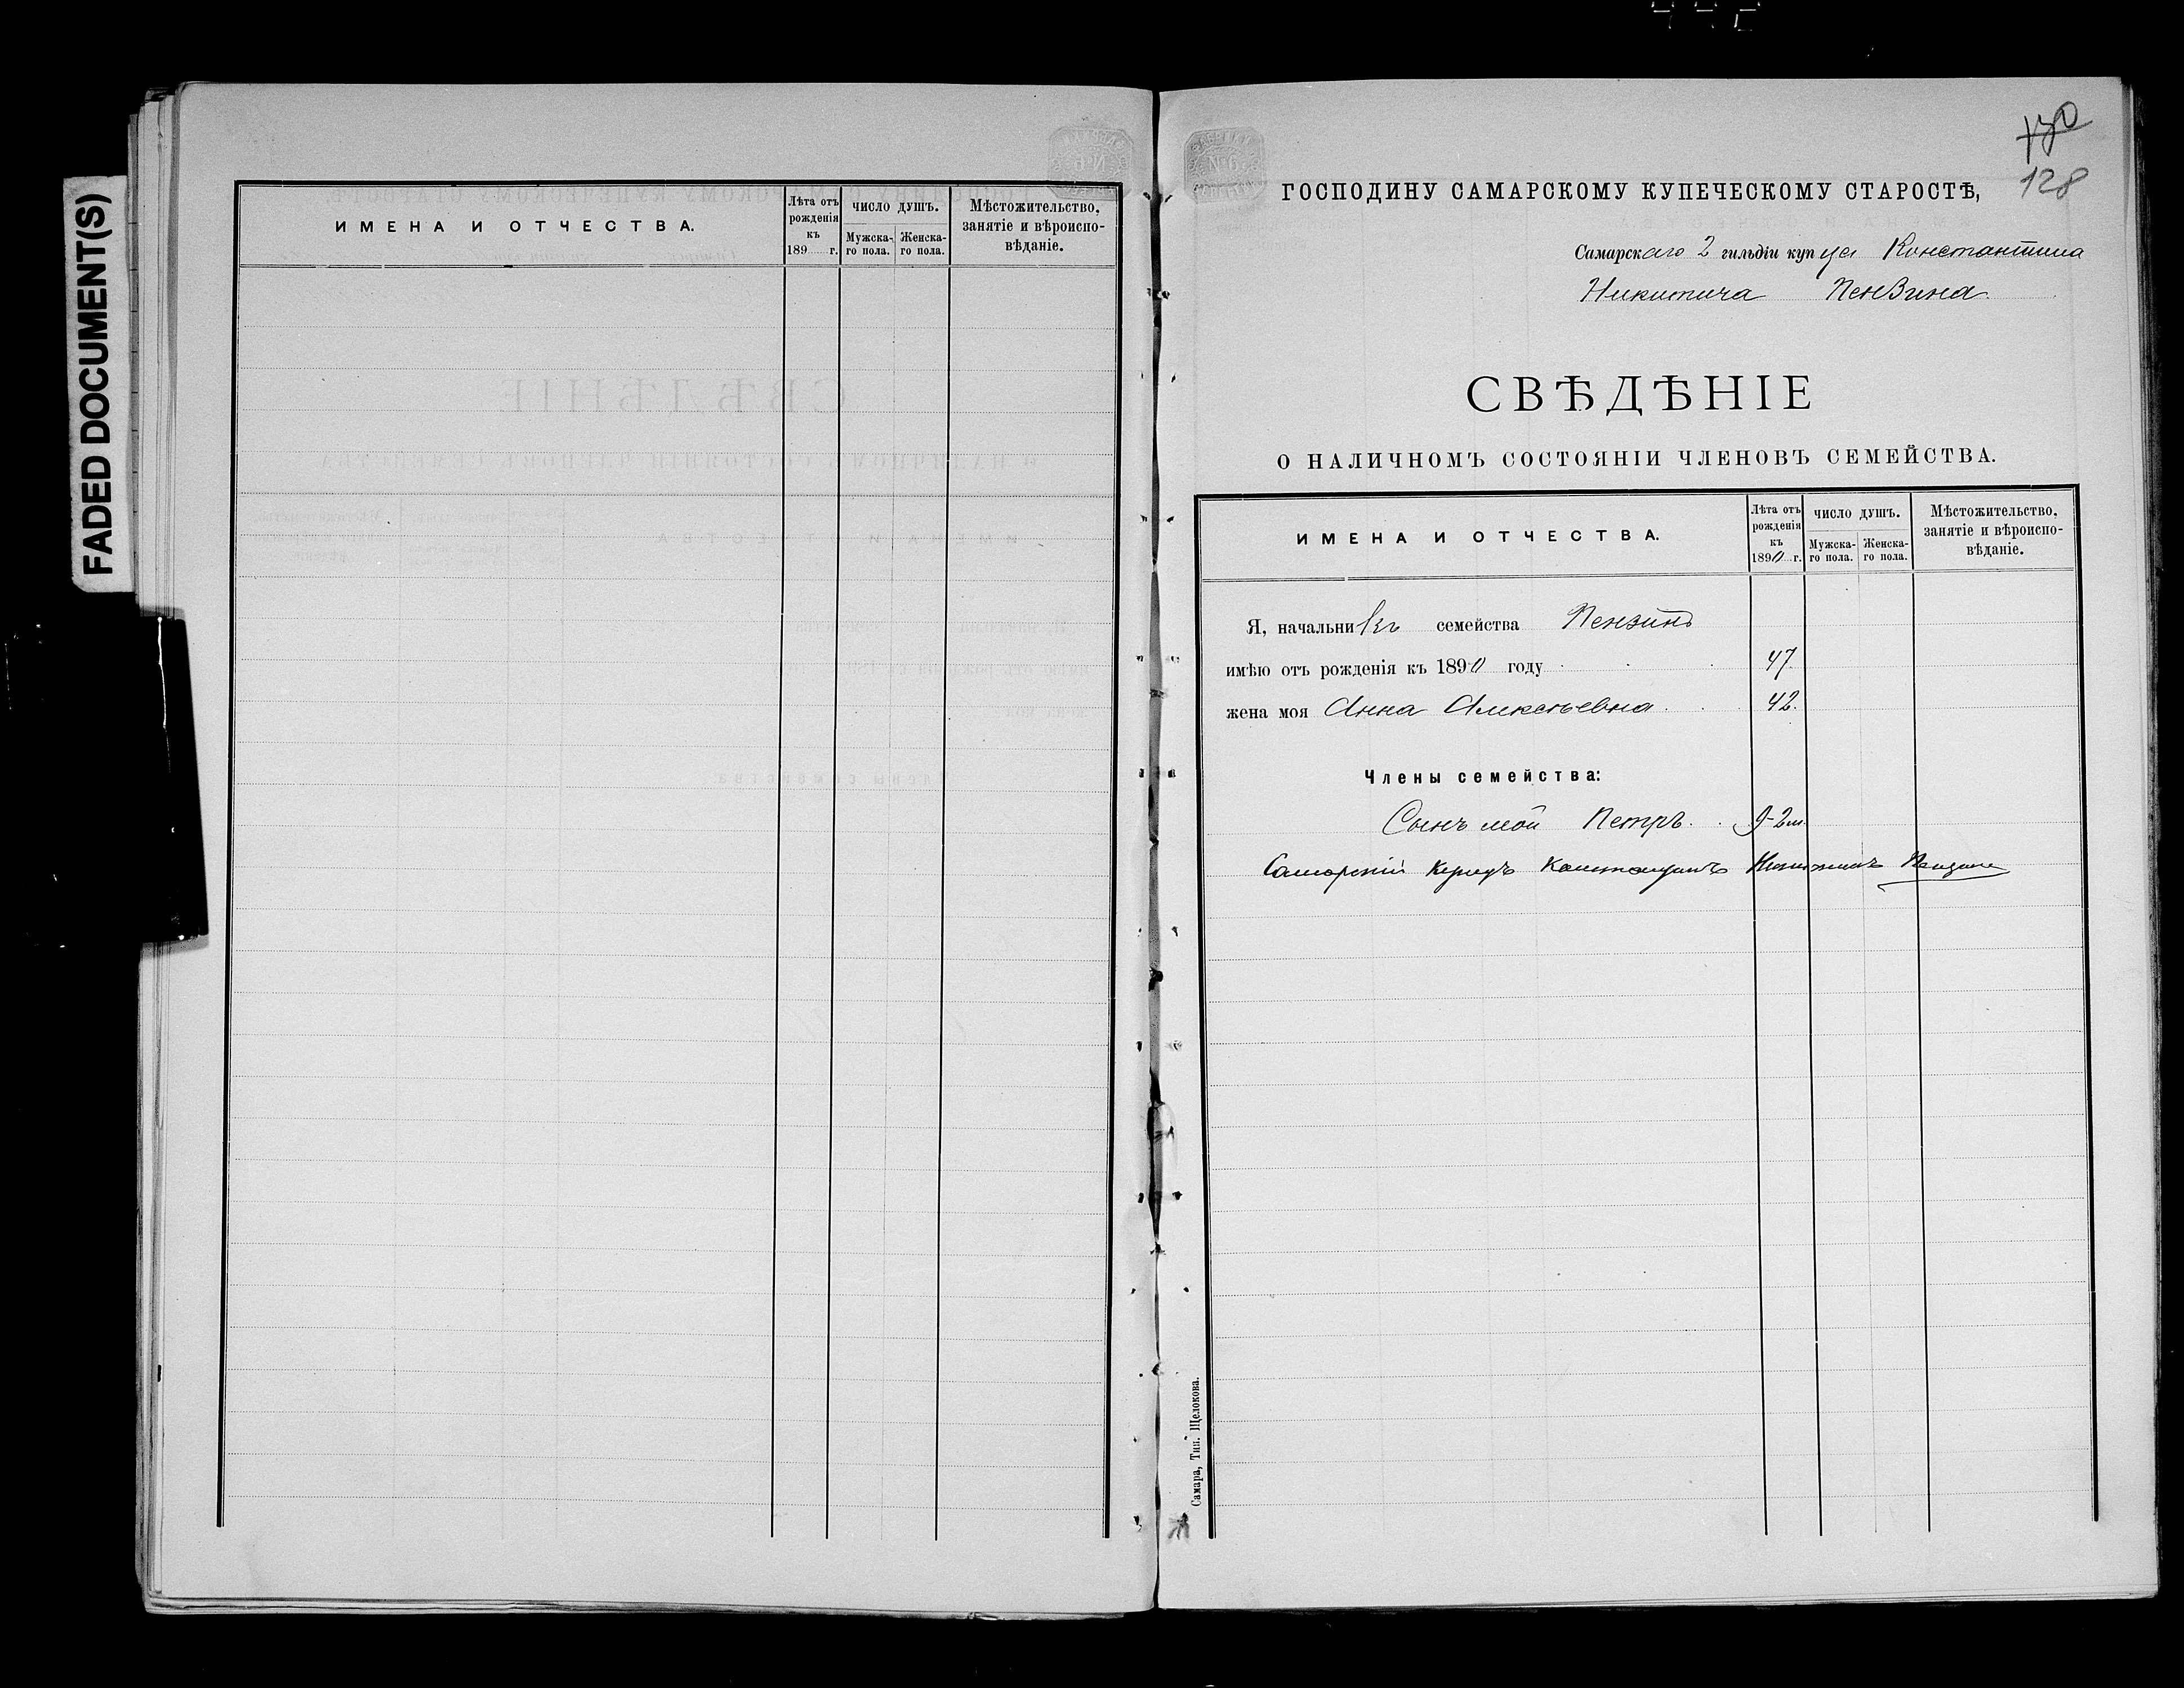 FADED DOCUMENT(S)
ИМЕНА И ОТЧЕСТВА.
Лѣта отъ рожденія къ 189 г.
ЧИСЛО ДУШЪ.
Мужска-го пола.
Женска-го пола.
Мѣстожительство, занятіе и вѣроиспо-вѣданіе.
130
128
№ 6
ГОСПОДИНУ САМАРСКОМУ КУПЕЧЕСКОМУ СТАРОСТѢ,
Самарскаго 2 гильдіи купца Константина
Никитича Пензина
СВѢДѢНІЕ
О НАЛИЧНОМЪ СОСТОЯНІИ ЧЛЕНОВЪ СЕМЕЙСТВА.
ИМЕНА И ОТЧЕСТВА.
Лѣта отъ рожденія къ 1890 г.
ЧИСЛО ДУШЪ.
Мужска-го пола.
Женска-го пола.
Мѣстожительство, занятіе и вѣроиспо-вѣданіе.
Я, начальникъ семейства Пензинъ
имѣю отъ рожденія къ 1890 году 47
жена моя Анна Алексѣевна 42.
Члены семейства:
Сынъ мой Петръ. 9-2 м.
Самарскій Купецъ Константинъ Никитичъ Пензинъ
Самара, Тип. Щелокова.